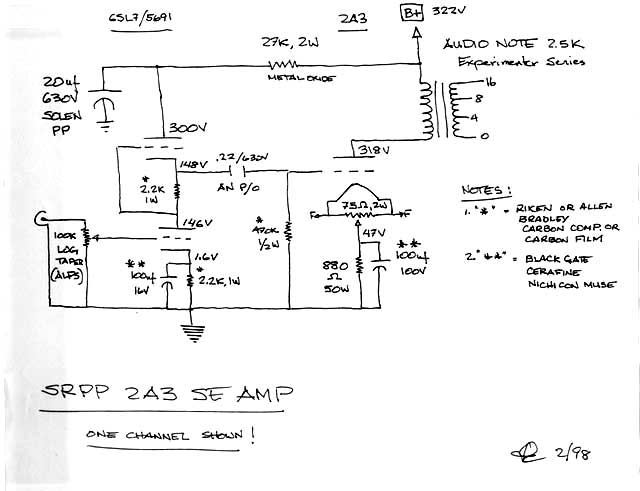 6SL7/5691
2A3
B+ 322V
27K, 2W
METAL OXIDE
AUDIO NOTE 2.5K
Experimenter Series
16
8
4
0
20uf
630V
SOLEN
PP
300V
318V
148V
.22/630V
AN P/O
*
2.2K
1W
146V
75Ω, 2W
F
F
47V
*
470K
1/2W
100K
LOG
TAPER
(ALPS)
1.6V
**
100uf
16V
*
2.2K, 1W
880
Ω
50W
**
100uf
100V
NOTES:
1. "*" = RIKEN OR ALLEN
BRADLEY
CARBON COMP. OR
CARBON FILM
2. "**" = BLACK GATE
CERAFINE
NICHICON MUSE
SRPP 2A3 SE AMP
ONE CHANNEL SHOWN!
2/98